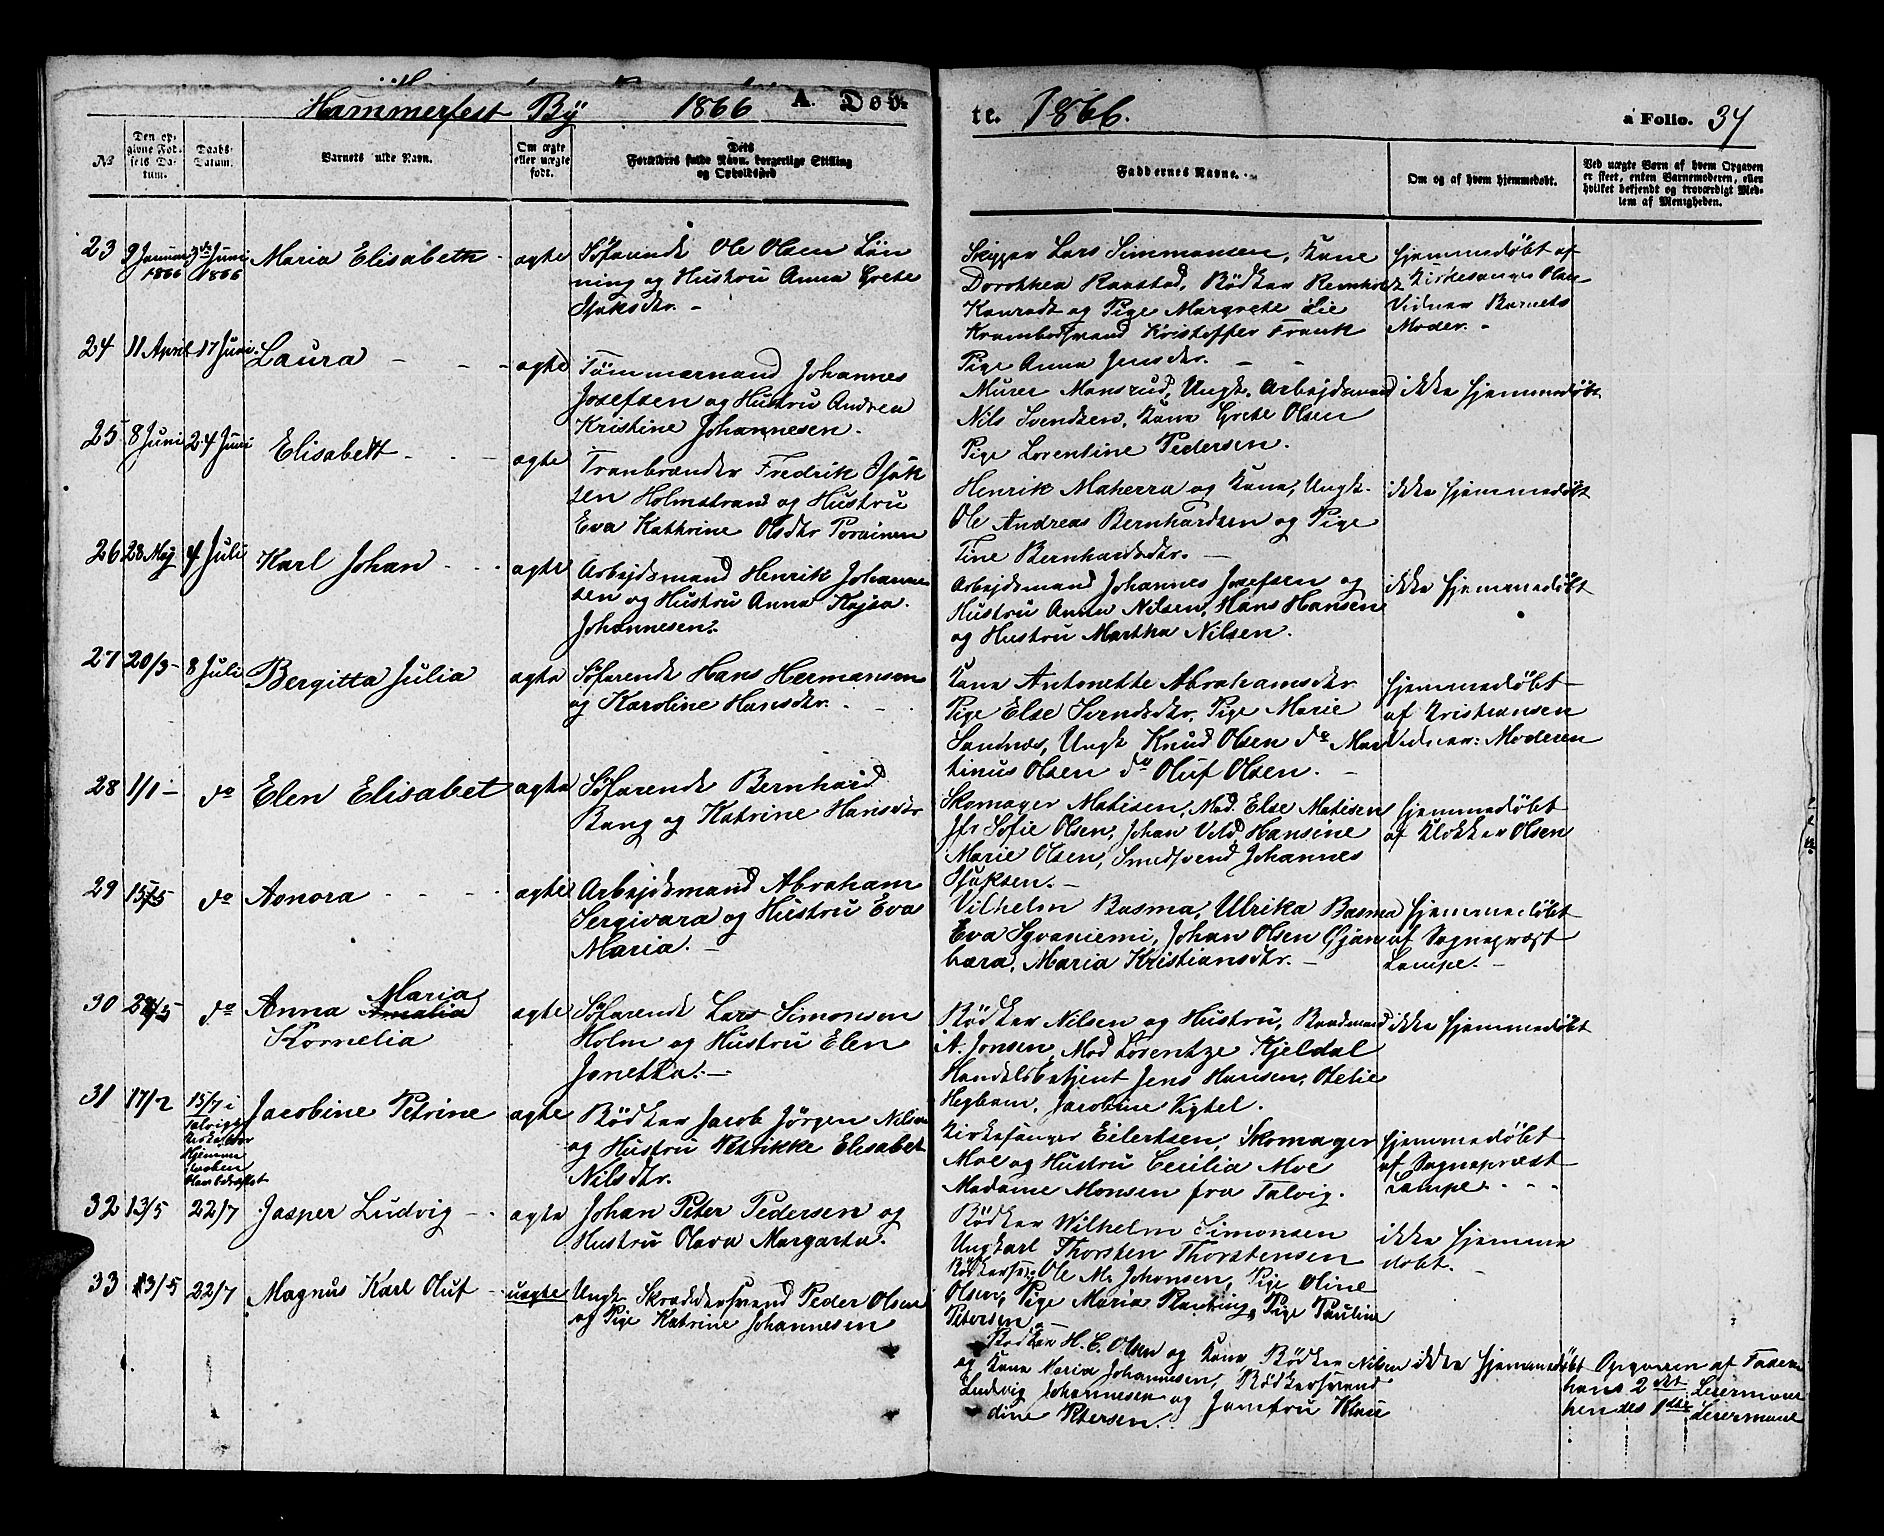 Hammerfest By 1866 A. Döb-
te. 1866. a Folio. 34
No
Den op-
givne Fød-
sels Da-
tum.
Daabs-
Datum.
Barnets fulde Navn.
Om ægte
eller uægte
født.
Dets
Forældres fulde Navn, borgerlige Stilling
og Opholdssted
Faddernes Navne.
Om og af hvem hjemmedøbt.
Ved uægte Barn af hvem Opgaven
er skeet, enten Barnemoderen, eller
hvilket bekjendt og troværdigt Med-
lem af Menigheden.
23 9 Januar 1866 3die Juni 1866 Maria Elisabeth - ægte
Søfarende Ole Olsen Løn
ning og Hustru Anna Grete
Isaksdtr. -
Skipper Lars Simmonsen, Kone
Dorothea Raastad, Bødker Remholt
Konradt og Pige Margrete Lie
Krambodsvend Kristoffer Frank
Pige Anna Jensdtr. -
Hjemmedøbt af
Kirkesanger Olsen
Vidner Barnets
Moder. -
24 11 April 17 Juni. Laura - - - ægte
Tømmermand Johannes
Josefsen og Hustru Andrea
Kristine Johannesen.
Murer Monsrud, Ungk. Arbejdsmand
Nils Svendsen, Kone Grete Olsen
Pige Lorentine Pedersen.
ikke hjemmedøbt
25 8 Juni 24 Juni Elisabett - - ægte
Tranbrænder Fredrik Isak
sen Holmstrand og Hustru
Eva Kathrine Olsdtr Porainen
Henrik Maherra og Kone, Ungk.
Ole Andreas Bernhardsen og Pige
Tine Bernhardsdtr. -
ikke hjemmedøbt
26 28 May 4 Juli Karl Johan - - ægte
Arbejdsmand Henrik Johanne
sen og Hustru Anna Kajsa
Johannesen.
Arbejdsmand Johannes Josefsen og
Hustru Anna Nilsen, Hans Hansen
og Hustru Martha Nilsen.
ikke hjemmedøbt
27 20/3 - 8 Juli Bergitta Julia ægte
Søfarende Hans Hermansen
og Karoline Hansdtr. - -
Kone Antonette Abrahamsdtr
Pige Else Svendsdtr, Pige Marie
Sandnæs, Ungk Knud Olsen do Mar
tinus Olsen do Oluf Olsen. -
hjemmedøbt
af Kristiansen
Vidner: Moderen
28 1/1 - do Elen Elisabet ægte
Søfarende Bernhard
Bang og Katrine Hansdtr
Skomager Matisen, Mad. Else Matisen
Jfr Sofie Olsen, Johan Vold, Hansine
Marie Olsen, Smedsvend Johannes
Isaksen. -
hjemmedøbt
af Klokker Olsen
29 15/5 do Aonora - - - ægte
Arbejdsmand Abraham
Sergivara og Hustru Eva
Maria. -
Vilhelm Basma, Ulrika Basma
Eva Syvaniemi, Johan Olsen Gjen
bara, Maria Kristiansdtr. -
hjemmedøbt
af Sognepræst
Lampe. -
30 do Anna Amalia Maria
Kornelia ægte
Søfarende Lars Simonsen
Holm og Hustru Elen
Janetta. -
Bødker Nilsen og Hustru, Baadsmand
A. Jonsen, Mad Lorentze Kjeldal
Handelsbetjent Jens Hansen, Otelie
Hegbom, Jacobine Vigtel.
ikke hjemmedøbt
31 17/2 15/7 i
Talvigs
Kirke
Hjemme
Jacobine Petrine ægte
Bødker Jacob Jørgen Nilsen
og Hustru Petrikke Elisabet
Nilsdtr.
Kirkesanger Eilertsen, Skomager
Moe og Hustru Cecilia Moe
Madame Monsen fra Talvig.
hjemmedøbt
af Sognepræst
Lampe. - - -
32 13/5 22/7 Jasper Ludvig - - ægte
Johan Peter Pedersen og
Hustru Olava Margarta.
Bødker Wilhelm Simonsen
Ungkarl Thorsten Thorstensen
Bødkersv: Ole M. Johansen, Pige Oline
Olsen, Pige Maria Planting, Pige Pauline
Petersen
ikke hjemme
døbt. -
33 13/5 22/7 Magnus Karl Oluf - uægte
Ungk Skræddersvend Peder Olsen
og Pige Katrine Johannesen
Bødker H. C. Olsen og Kone, Bødker Nilsen
og Kone Maria Johannesen, Bødkersvend
Ludvig Johannesen og Jomfru Klau
dine Petersen.
ikke hjemmedøbt
Opgaven af Faderen
hans 2det Leiermaal
hendes 1ste Leiermaal